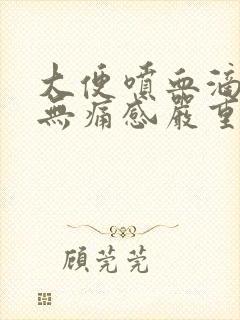 大便噴血滴
無痛感嚴重
顧莞莞